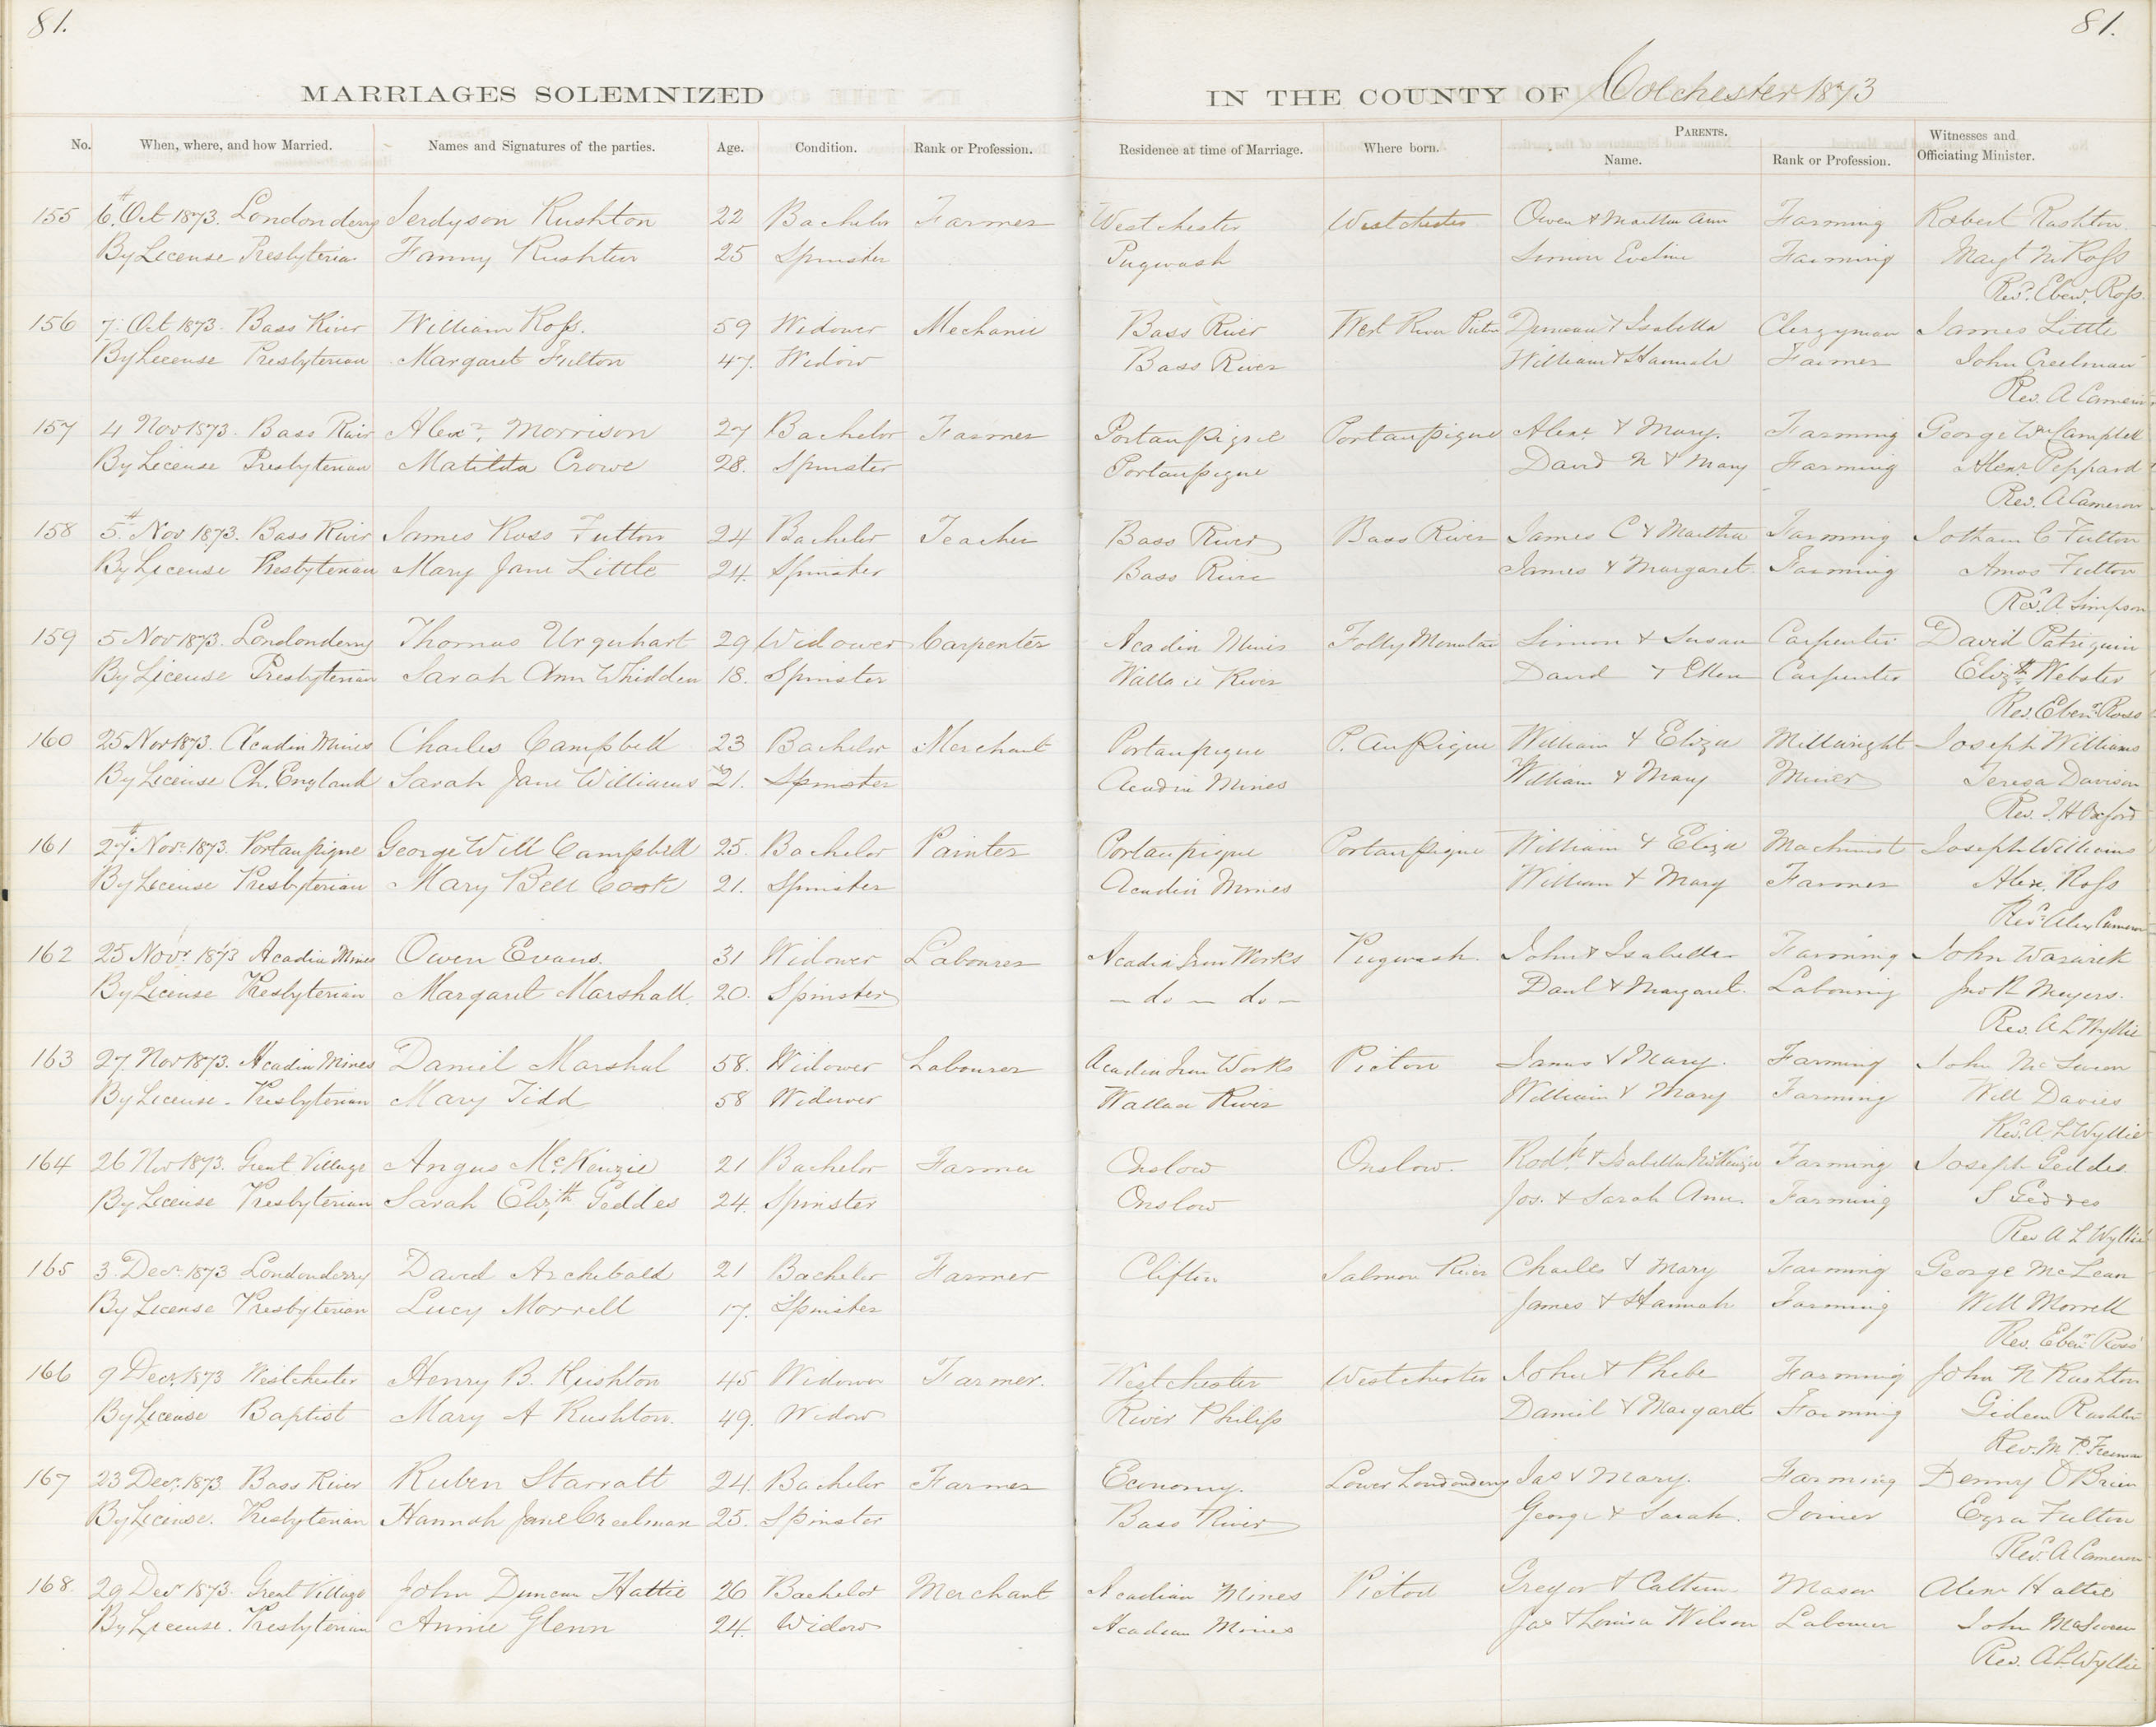 81. 81.
MARRIAGES SOLEMNIZED IN THE COUNTY OF Colchester 1873
No. When, where, and how Married. Names and Signatures of the parties. Age. Condition. Rank or Profession. Residence at time of Marriage. Where born. PARENTS. Name. Rank or Profession. Witnesses and Officiating Minister.
155 6th Oct 1873. Londonderry Jerdyson Rushton 22 Bachelor Farmer Westchester Westchester Owen & Martha Ann Farming Robert Rushton
By License Presbyterian Fanny Rushton 25 Spinster Pugwash Simion Eveline Farming Margt N Ross
Revd. Ebenr. Ross.
156 7. Oct 1873. Bass River William Ross. 59 Widower Mechanic Bass River West River Pictou Duncan & Isabella Clergyman James Little
By License Presbyterian Margaret Fulton 47. Widow Bass River William & Hannah Farmer John Creelman
Rev. A Cameron
157 4 Nov 1873. Bass River Alexr. Morrison 27 Bachelor Farmer Portaupique Portaupique Alexr & Mary. Farming George Wm Campbell
By License Presbyterian Matilda Crowe 28. Spinster Portaupique David N & Mary Farming Alexr Peppard
Rev. A Cameron
158 5th Nov 1873. Bass River James Ross Fulton 24 Bachelor Teacher Bass River Bass River James C & Martha Farming Jotham C Fulton
By License Presbyterian Mary Jane Little 24. Spinster Bass River James & Margaret. Farming Amos Fulton
Revd. A Simpson
159 5 Nov 1873. Londonderry Thomas Urquhart 29 Widower Carpenter Acadia Mines Folly Mountain Simon & Susan Carpenter David Patriquin
By License Presbyterian Sarah Ann Whidden 18. Spinster Wallace River David & Ellen Carpenter Elizth Webster
Rev. Ebenr. Ross
160 25 Nov 1873. Acadia Mines Charles Campbell 23 Bachelor Merchant Portaupique P. Aupique William & Eliza Millwright Joseph Williams
By License Ch. England Sarah Jane Williams 21. Spinster Acadia Mines William & Mary Miner Teresa Davison
Rev. J. H Oxford
161 27th Novr 1873. Portaupique George Will Campbell 25. Bachelor Painter Portaupique Portaupique William & Eliza Machinist Joseph Williams
By License Presbyterian Mary Bell Cook 21. Spinster Acadia Mines William & Mary Farmer Alex. Ross
Revd. Alex Cameron
162 25 Novr 1873 Acadia Mines Owen Evans. 31 Widower Labourer Acadia Iron Works Pugwash. John & Isabella Farming John Warwick
By License Presbyterian Margaret Marshall. 20. Spinster — do — do — Danl & Margaret. Labouring Jno R Meyers.
Rev. A L Wyllie
163 27 Nov 1873. Acadia Mines Daniel Marshal 58. Widower Labourer Acadia Iron Works Pictou James & Mary. Farming John
By License. Presbyterian Mary Tidd 58 Widower Wallace River William & Mary Farming Will Davies
Rev. A L Wyllie
164 26 Nov 1873. Great Village Angus McKenzie 21 Bachelor Farmer Onslow Onslow. Rodk & Isabella McKenzie Farming Joseph Geddes.
By License Presbyterian Sarah Elizth Geddes 24. Spinster Onslow Jos. & Sarah Ann. Farming S Geddes
Rev A L Wyllie
165 3 Decr. 1873 Londonderry David Archibald 21 Bachelor Farmer Clifton Salmon River Charles & Mary Farming George McLean
By License Presbyterian Lucy Morrell 17. Spinster James & Hannah Farming Will Morrell
Rev. Ebenr. Ross
166 9 Decr. 1873 Westchester Henry B. Rushton 45 Widower Farmer. Westchester Westchester John & Phebe Farming John N Rushton
By License Baptist Mary A Rushton. 49. Widow River Philip Daniel & Margaret Farming Gideon Rushton
Rev. M P. Freeman
167 23 Decr. 1873. Bass River Ruben Starratt 24. Bachelor Farmer Economy. Lower Londonderry Jas & Mary. Farming Denny O'Brien
By License. Presbyterian Hannah Jane Creelman 25. Spinster Bass River George & Sarah. Joiner Ezra Fulton
Revd. A Cameron
168. 29 Decr 1873. Great Village John Duncan Hattie 26 Bachelor Merchant Acadian Mines Pictou Gregor & Mason Alexr Hattie
By License. Presbyterian Annie Glenn 24. Widow Acadian Mines Jas & Louisa Wilson Labourer John
Rev. A L Wyllie